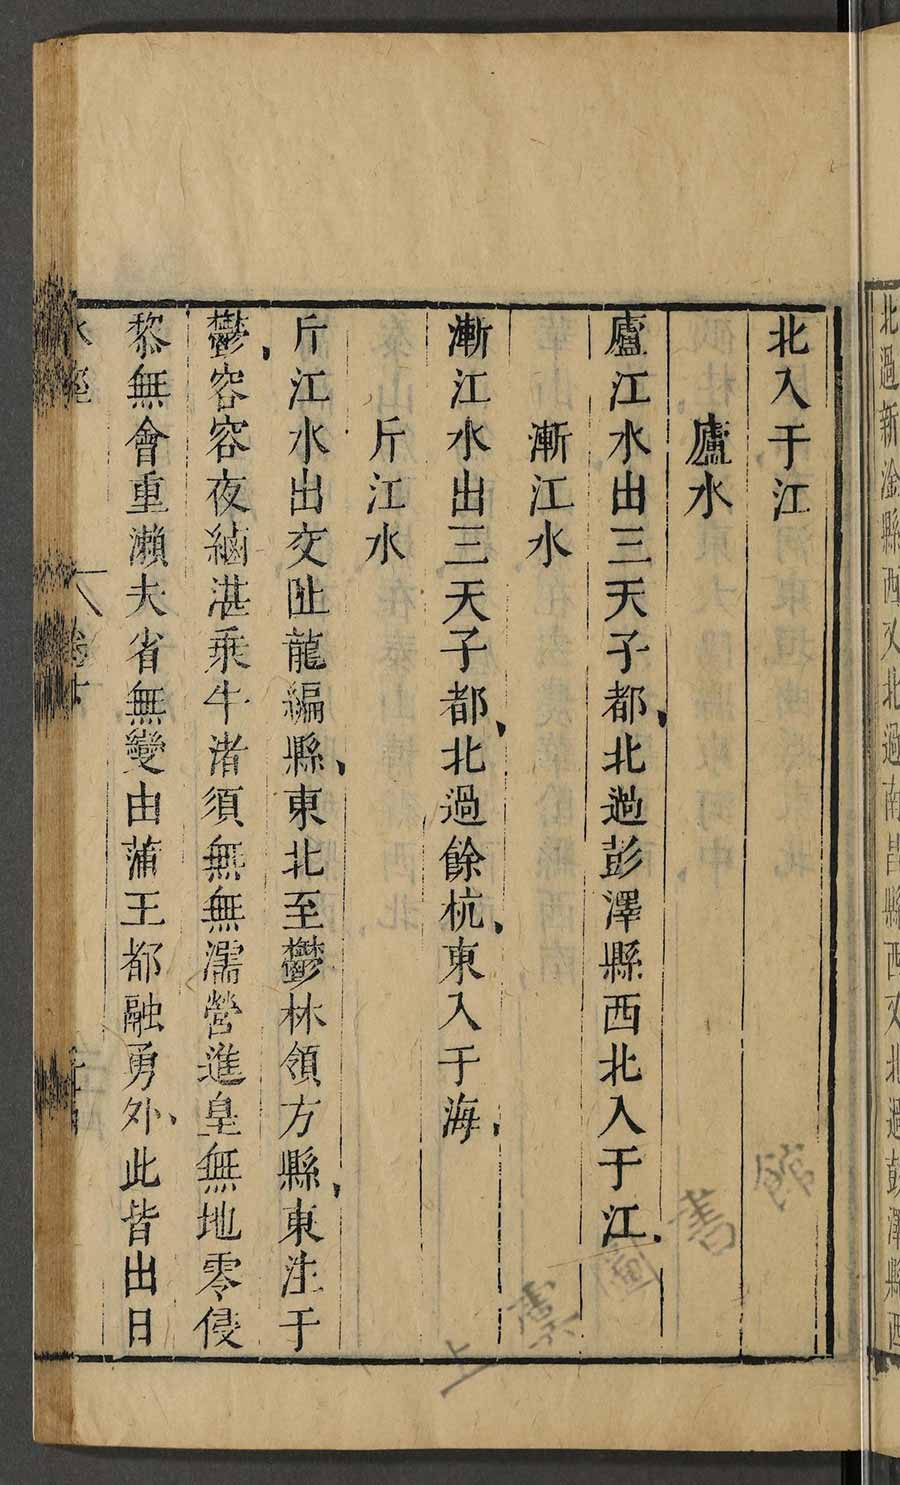 北過新淦縣西又北過南昌縣西又北過彭澤縣西
北入于江
廬水
廬江水出三天子都北過彭澤縣西北入于江
漸江水
漸江水出三天子都北過餘杭東入于海
斤江水
斤江水出交阯龍編縣東北至鬱林領方縣東注于
鬱容容夜緬湛乘牛渚須無無濡營進皇無地零侵
黎無會重瀨夫省無變由蒲王都融勇外此皆出日
水經
卷下
上 圖書館